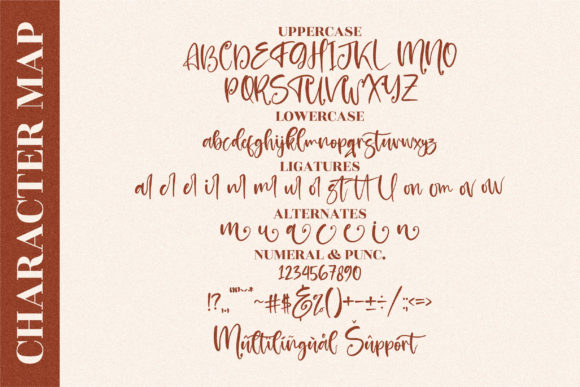 CHARACTER MAP
UPPERCASE
ABCDEFGHIJKL MNO
PQRSTUVWXYZ
LOWERCASE
abcdefghijklmnopqrstuvwxyz
LIGATURES
al cl el il nl ml ul ol gt tt ll on om ov ow
ALTERNATES
m u a c c i n
NUMERAL & PUNC.
1234567890
~#$&%()+-±÷/:;<=>
Mũltilíñgùål Šûppört